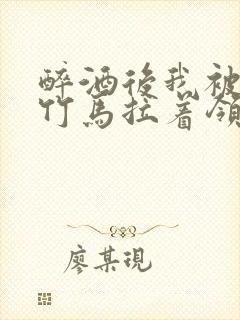 醉酒後我被
竹馬拉着领
廖某現